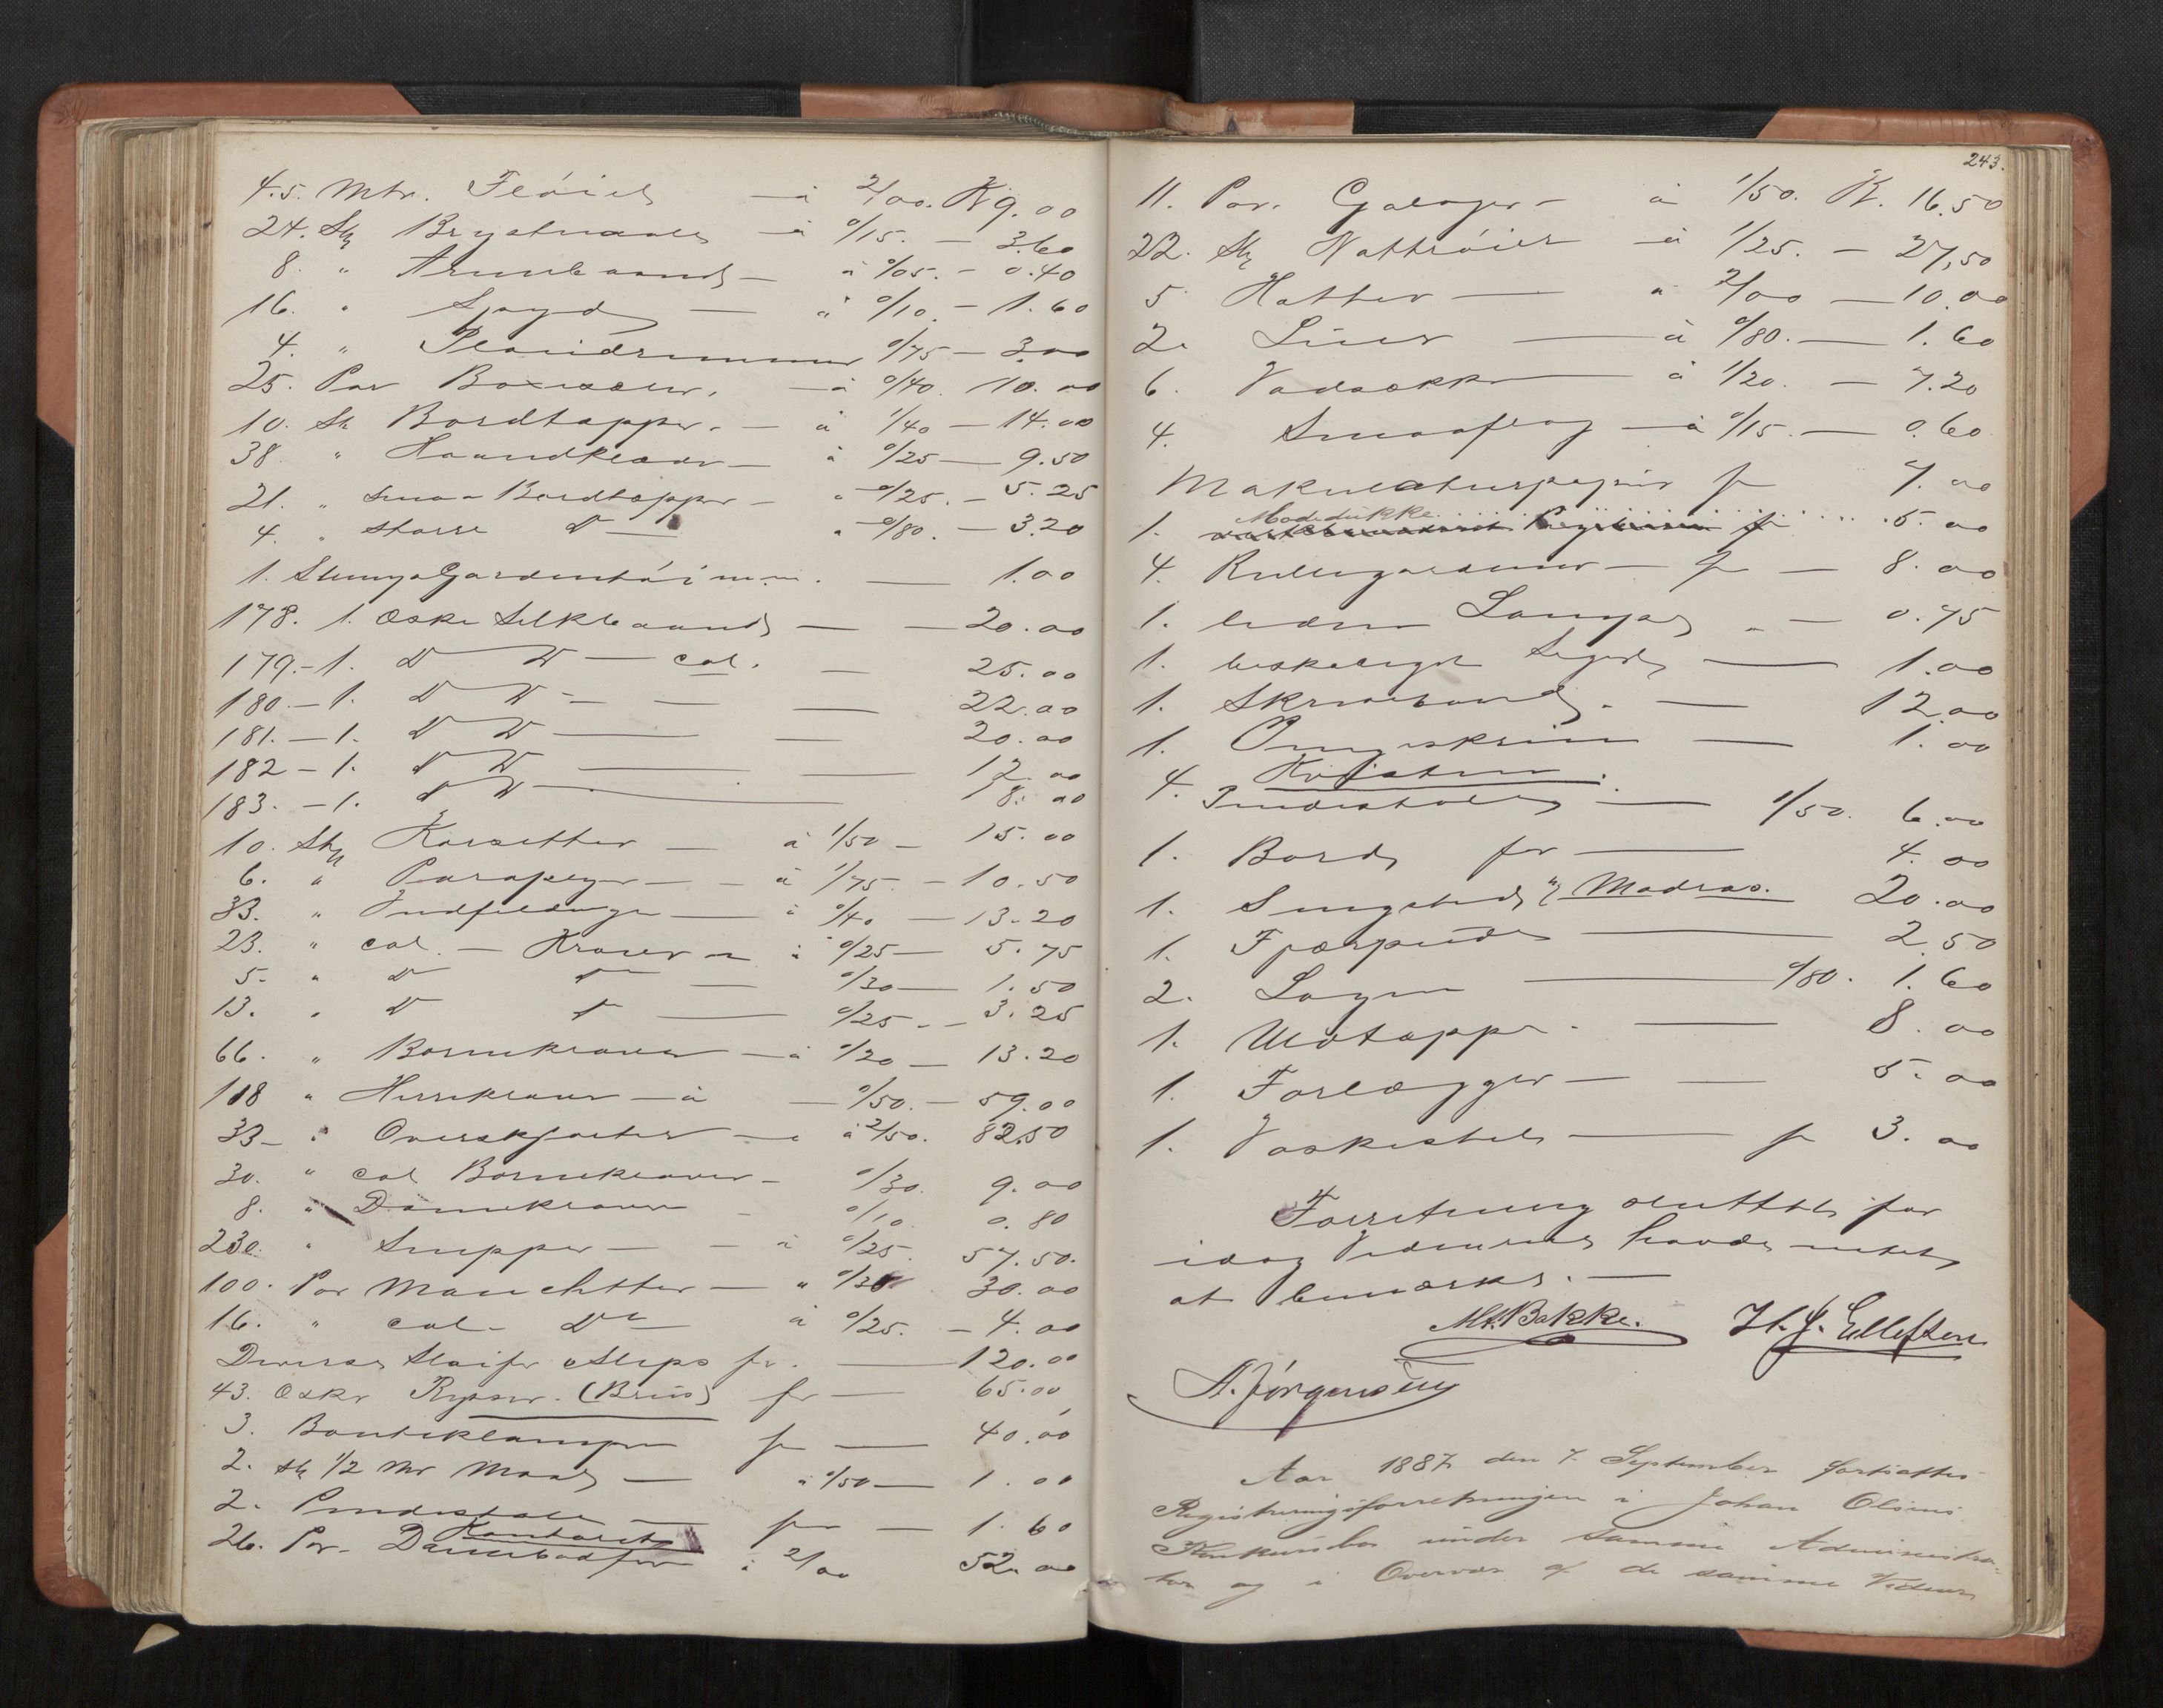 4.5. Mtr. Fløiel — à 2/00. K 9.00
24. Stk Brystnaale — à 0/15. — 3.60
8. " Armbaand — à 0/05. — 0.40
16. " — à 0/10. — 1.60
4. " 0/75 — 3.00
25. Par — à 0/40. 10.00
10. St Bordtæpper. — à 1/40 — 14.00
38 " Haandklæder — à 0/25 — 9.50
21. " smaa Bordtæpper — " 0/25. — 5.25
4. " større Do — " 0/80. — 3.20
1. — 1.00
178. 1. Æske Silkebaand — — 20.00
179. — 1. Do Do — col. — 25.00
180. — 1. Do Do — — — 22.00
181. — 1. Do Do — — 20.00
182 — 1. Do Do — — 12.00
183. — 1. Do Do — 18.00
10. Stk Korsetter — à 1/50 — 15.00
6. " Paraplyer — à 1/75. — 10.50
33. " — à 0/40 — 13.20
23. " col. — Kraver — à 0/25 — 5.75
5. " Do Do — 0/30 — 1.50
13. " Do Do — 0/25 — 3.25
66. " Børnekraver — à 0/20 — 13.20
118 " Herrekraver — à — 0/50. — 59.00
33 — " Overskjorter — à 2/50. 82.50
30. " col Børnekraver — 0/30. 9.00
8. " Damekraver — 0/10. 0.80
230. " — à 0/25. 57.50.
100. Par Manchetter — " 0/30 30.00
16. " col. Do à 0/25. — 4.00
Diverse Sløifer & Slips for. — 120.00
43. Æsker (Brus) for — 65.00
3. Butiklamper for — 40.00
2. stk 1/2 Mr Maal — à 0/50 — 1.00
2. for — 1.60
Kontoret
26. Par. à 2/00 52.00
243.
11. Par. Galoger — à 1/50. K. 16.50
22. Stk Nattrøier — à 1/25. — 27,50
5 Hatter — à 2/00 — 10.00
2. Luer — à 0/80. — 1.60
6. Vadsække — à 1/20. — 7.20
4. Smaaflag — à 0/15. — 0.60
Makulaturpapir for 7.00
1. Modedukke 5.00
4. Rullegardiner — for — 8. 00
1. liden Lampe — 0.75
1. beskadiget — 1.00
1. Skrivebord. — 12.00
1. Pengeskrin — 1.00
Kvisten.
4. Pindestole — 1/50. 6.00
1. Bord for — 4.00
1. Sengested m/ Madras. 20.00
1. Fjærpude — 2.50
2. Lagen — 0/80. 1.60
1. Uldtæppe. — 8.00
1. Forlægger — — 5.00
1. Vaskestel — for 3.00
Forretning sluttet for
idag Vidnerne havde intet
at bemærke. —
Mt. Bakke. H. J. Ellefsen
A. Jørgensen
Aar 1887 den 7. September fortsattes
Registreringsforretningen i Johan Olsens
Konkursbo under samme Administra-
tor og i Overvær af de samme Vidner